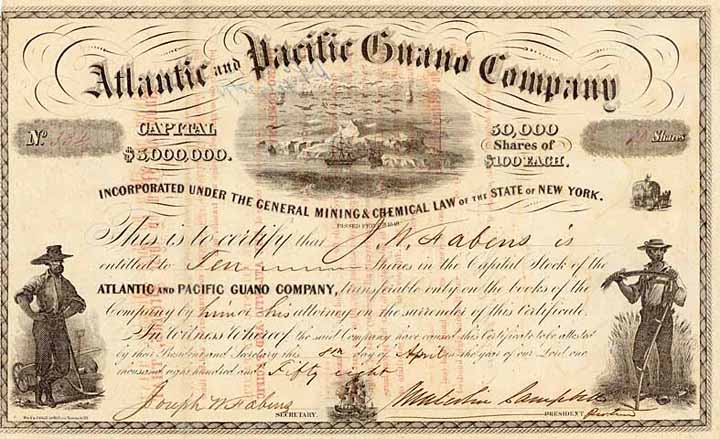 Atlantic and Pacific Guano Company
No.
CAPITAL
$5,000,000.
50,000
Shares of
$100 EACH.
Shares
INCORPORATED UNDER THE GENERAL MINING & CHEMICAL LAW OF THE STATE OF NEW YORK.
This is to certify that J. W. Fabens is
entitled to Ten Shares in the Capital Stock of the
ATLANTIC AND PACIFIC GUANO COMPANY, transferable only on the books of the
Company by him or his attorney on the surrender of this Certificate.
In Witness Whereof the said Company have caused this Certificate to be attested
by their President and Secretary this day of April in the year of our Lord one
thousand eight hundred and Fifty eight
Joseph W Fabens
SECRETARY.
Malcolm Campbell
PRESIDENT